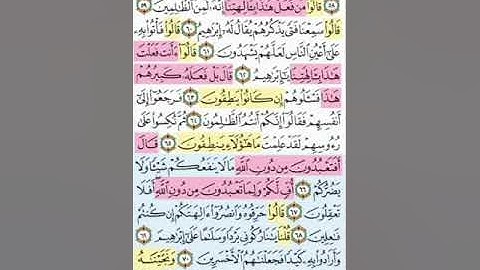 قَالُوا۟ مَن فَعَلَ هَٰذَا بِـَٔالِهَتِنَآ إِنَّهُۥ لَمِنَ ٱلظَّٰلِمِينَ ٥٩
قَالُوا۟ سَمِعْنَا فَتًى يَذْكُرُهُمْ يُقَالُ لَهُۥٓ إِبْرَٰهِيمُ ٦٠ قَالُوا۟ فَأْتُوا۟ بِهِۦ
عَلَىٰٓ أَعْيُنِ ٱلنَّاسِ لَعَلَّهُمْ يَشْهَدُونَ ٦١ قَالُوٓا۟ ءَأَنتَ فَعَلْتَ
هَٰذَا بِـَٔالِهَتِنَا يَٰٓإِبْرَٰهِيمُ ٦٢ قَالَ بَلْ فَعَلَهُۥ كَبِيرُهُمْ
هَٰذَا فَسْـَٔلُوهُمْ إِن كَانُوا۟ يَنطِقُونَ ٦٣ فَرَجَعُوٓا۟ إِلَىٰٓ
أَنفُسِهِمْ فَقَالُوٓا۟ إِنَّكُمْ أَنتُمُ ٱلظَّٰلِمُونَ ٦٤ ثُمَّ نُكِسُوا۟ عَلَىٰ
رُءُوسِهِمْ لَقَدْ عَلِمْتَ مَا هَٰٓؤُلَآءِ يَنطِقُونَ ٦٥ قَالَ
أَفَتَعْبُدُونَ مِن دُونِ ٱللَّهِ مَا لَا يَنفَعُكُمْ شَيْـًٔا وَلَا
يَضُرُّكُمْ ٦٦ أُفٍّ لَّكُمْ وَلِمَا تَعْبُدُونَ مِن دُونِ ٱللَّهِ أَفَلَا
تَعْقِلُونَ ٦٧ قَالُوا۟ حَرِّقُوهُ وَٱنصُرُوٓا۟ ءَالِهَتَكُمْ إِن كُنتُمْ
فَٰعِلِينَ ٦٨ قُلْنَا يَٰنَارُ كُونِى بَرْدًا وَسَلَٰمًا عَلَىٰٓ إِبْرَٰهِيمَ ٦٩
وَأَرَادُوا۟ بِهِۦ كَيْدًا فَجَعَلْنَٰهُمُ ٱلْأَخْسَرِينَ ٧٠ وَنَجَّيْنَٰهُ